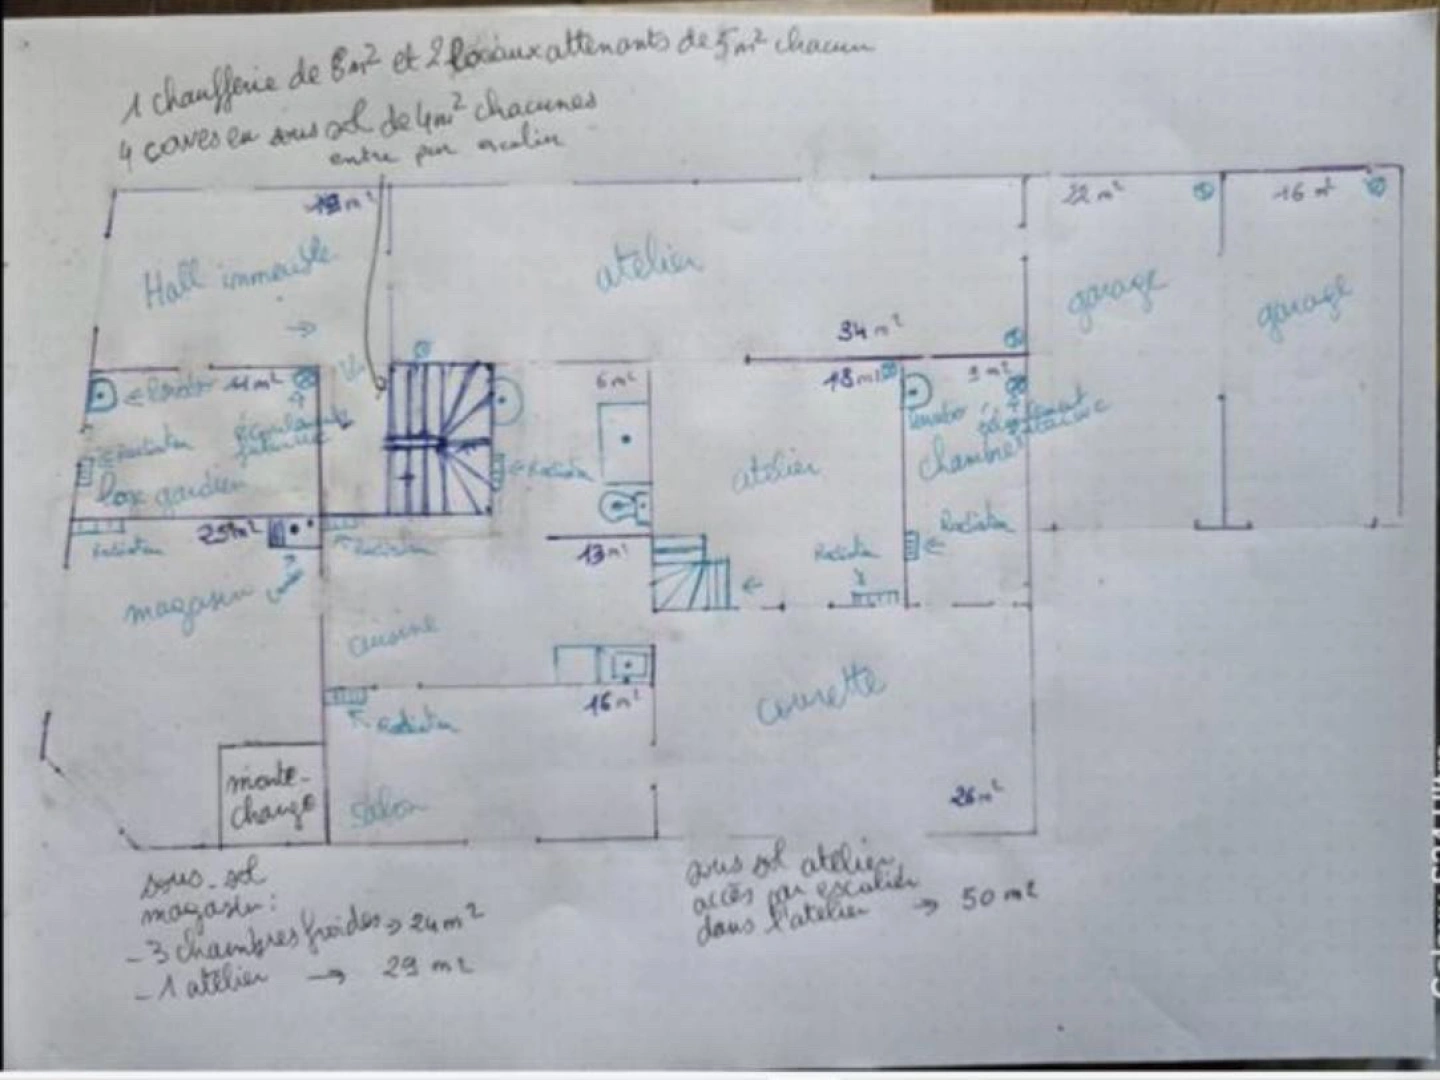 1 chaufferie de 8m² et 2 locaux attenants de 5m² chacun
4 caves en sous sol de 4m² chacunes
entre par escalier
22 m²
16 m²
Hall immeuble
atelier
garage
garage
34 m²
11m²
6m²
18m²
9m²
← Lavabo
Lavabo
← Radiateur
← Radiateur
loge gardien
atelier
chambre
25m²
Radiateur
← Radiateur
13m²
Radiateur
← Radiateur
magasin
cuisine
16m²
courette
Radiateur
monte-
charge
Salon
26m²
sous-sol
magasin:
- 3 chambres froides → 24m²
- 1 atelier → 29 m²
sous sol atelier
accès par escalier
dans l'atelier → 50 m²